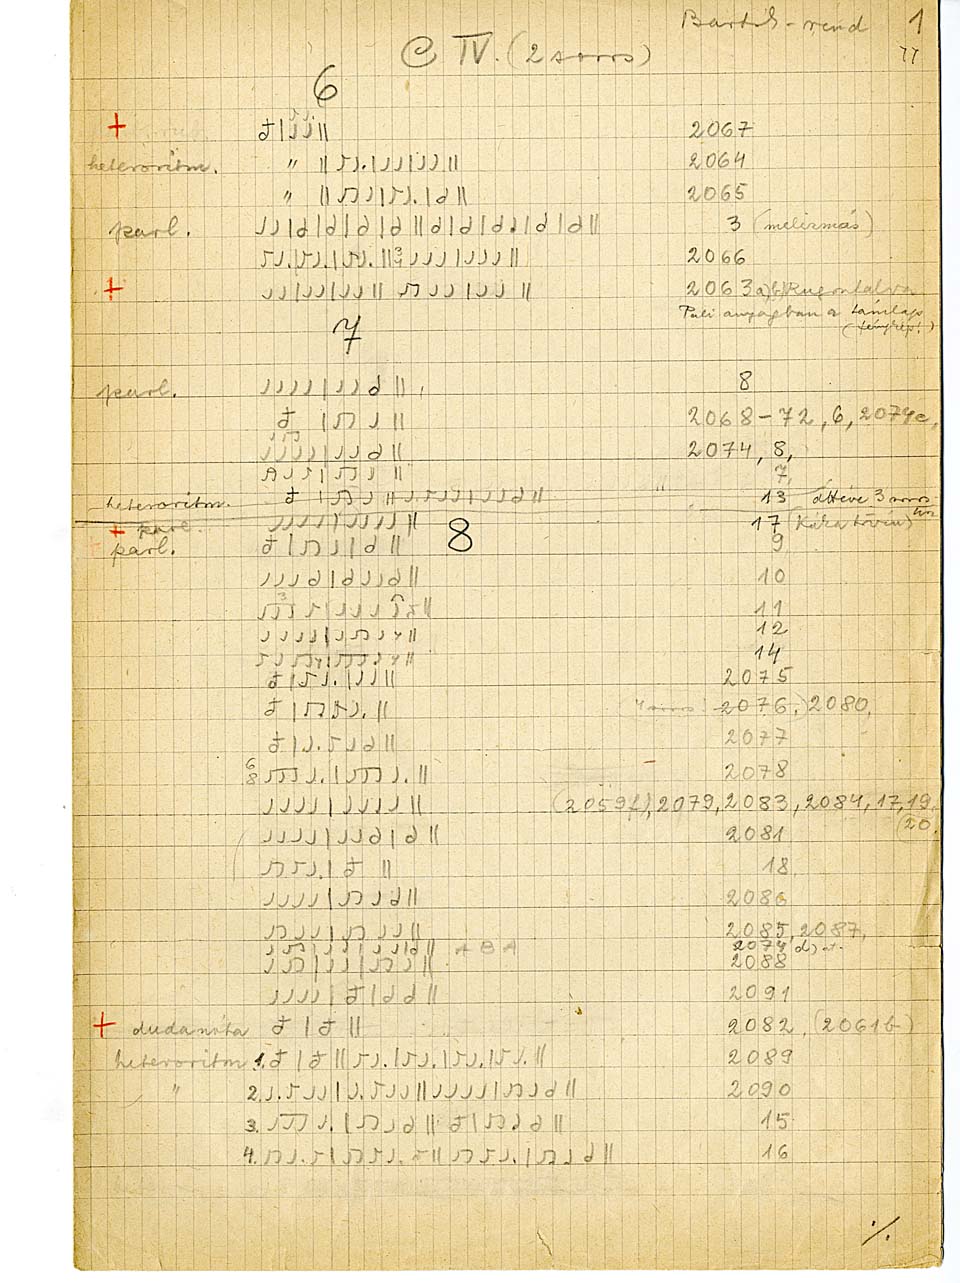 Bartók-rend 1
C IV. (2 soros)
6
+ 2067
heteroritm. " 2064
" 2065
parl. 3 (melizmás)
3/4 2066
+ 2063 a)b)
anyagban a támlap
7
parl. 8
2068-72, 6, 2074c,
2074, 8,
7,
heteroritm. 13 áttéve 3 soros
+ parl. 17
8
parl. 9
10
3 11
12
14
2075
(4 soros! 2076,) 2080,
2077
6/8 2078
(2059f), 2079, 2083, 2084, 17, 19,
(20.
2081
18.
2086
2085, 2087,
A B A 2074 d)
2088
2091
+ dudanóta 2082, (2061b)
heteroritm 1. 2089
" 2. 2090
3. 15
4. 16
./.